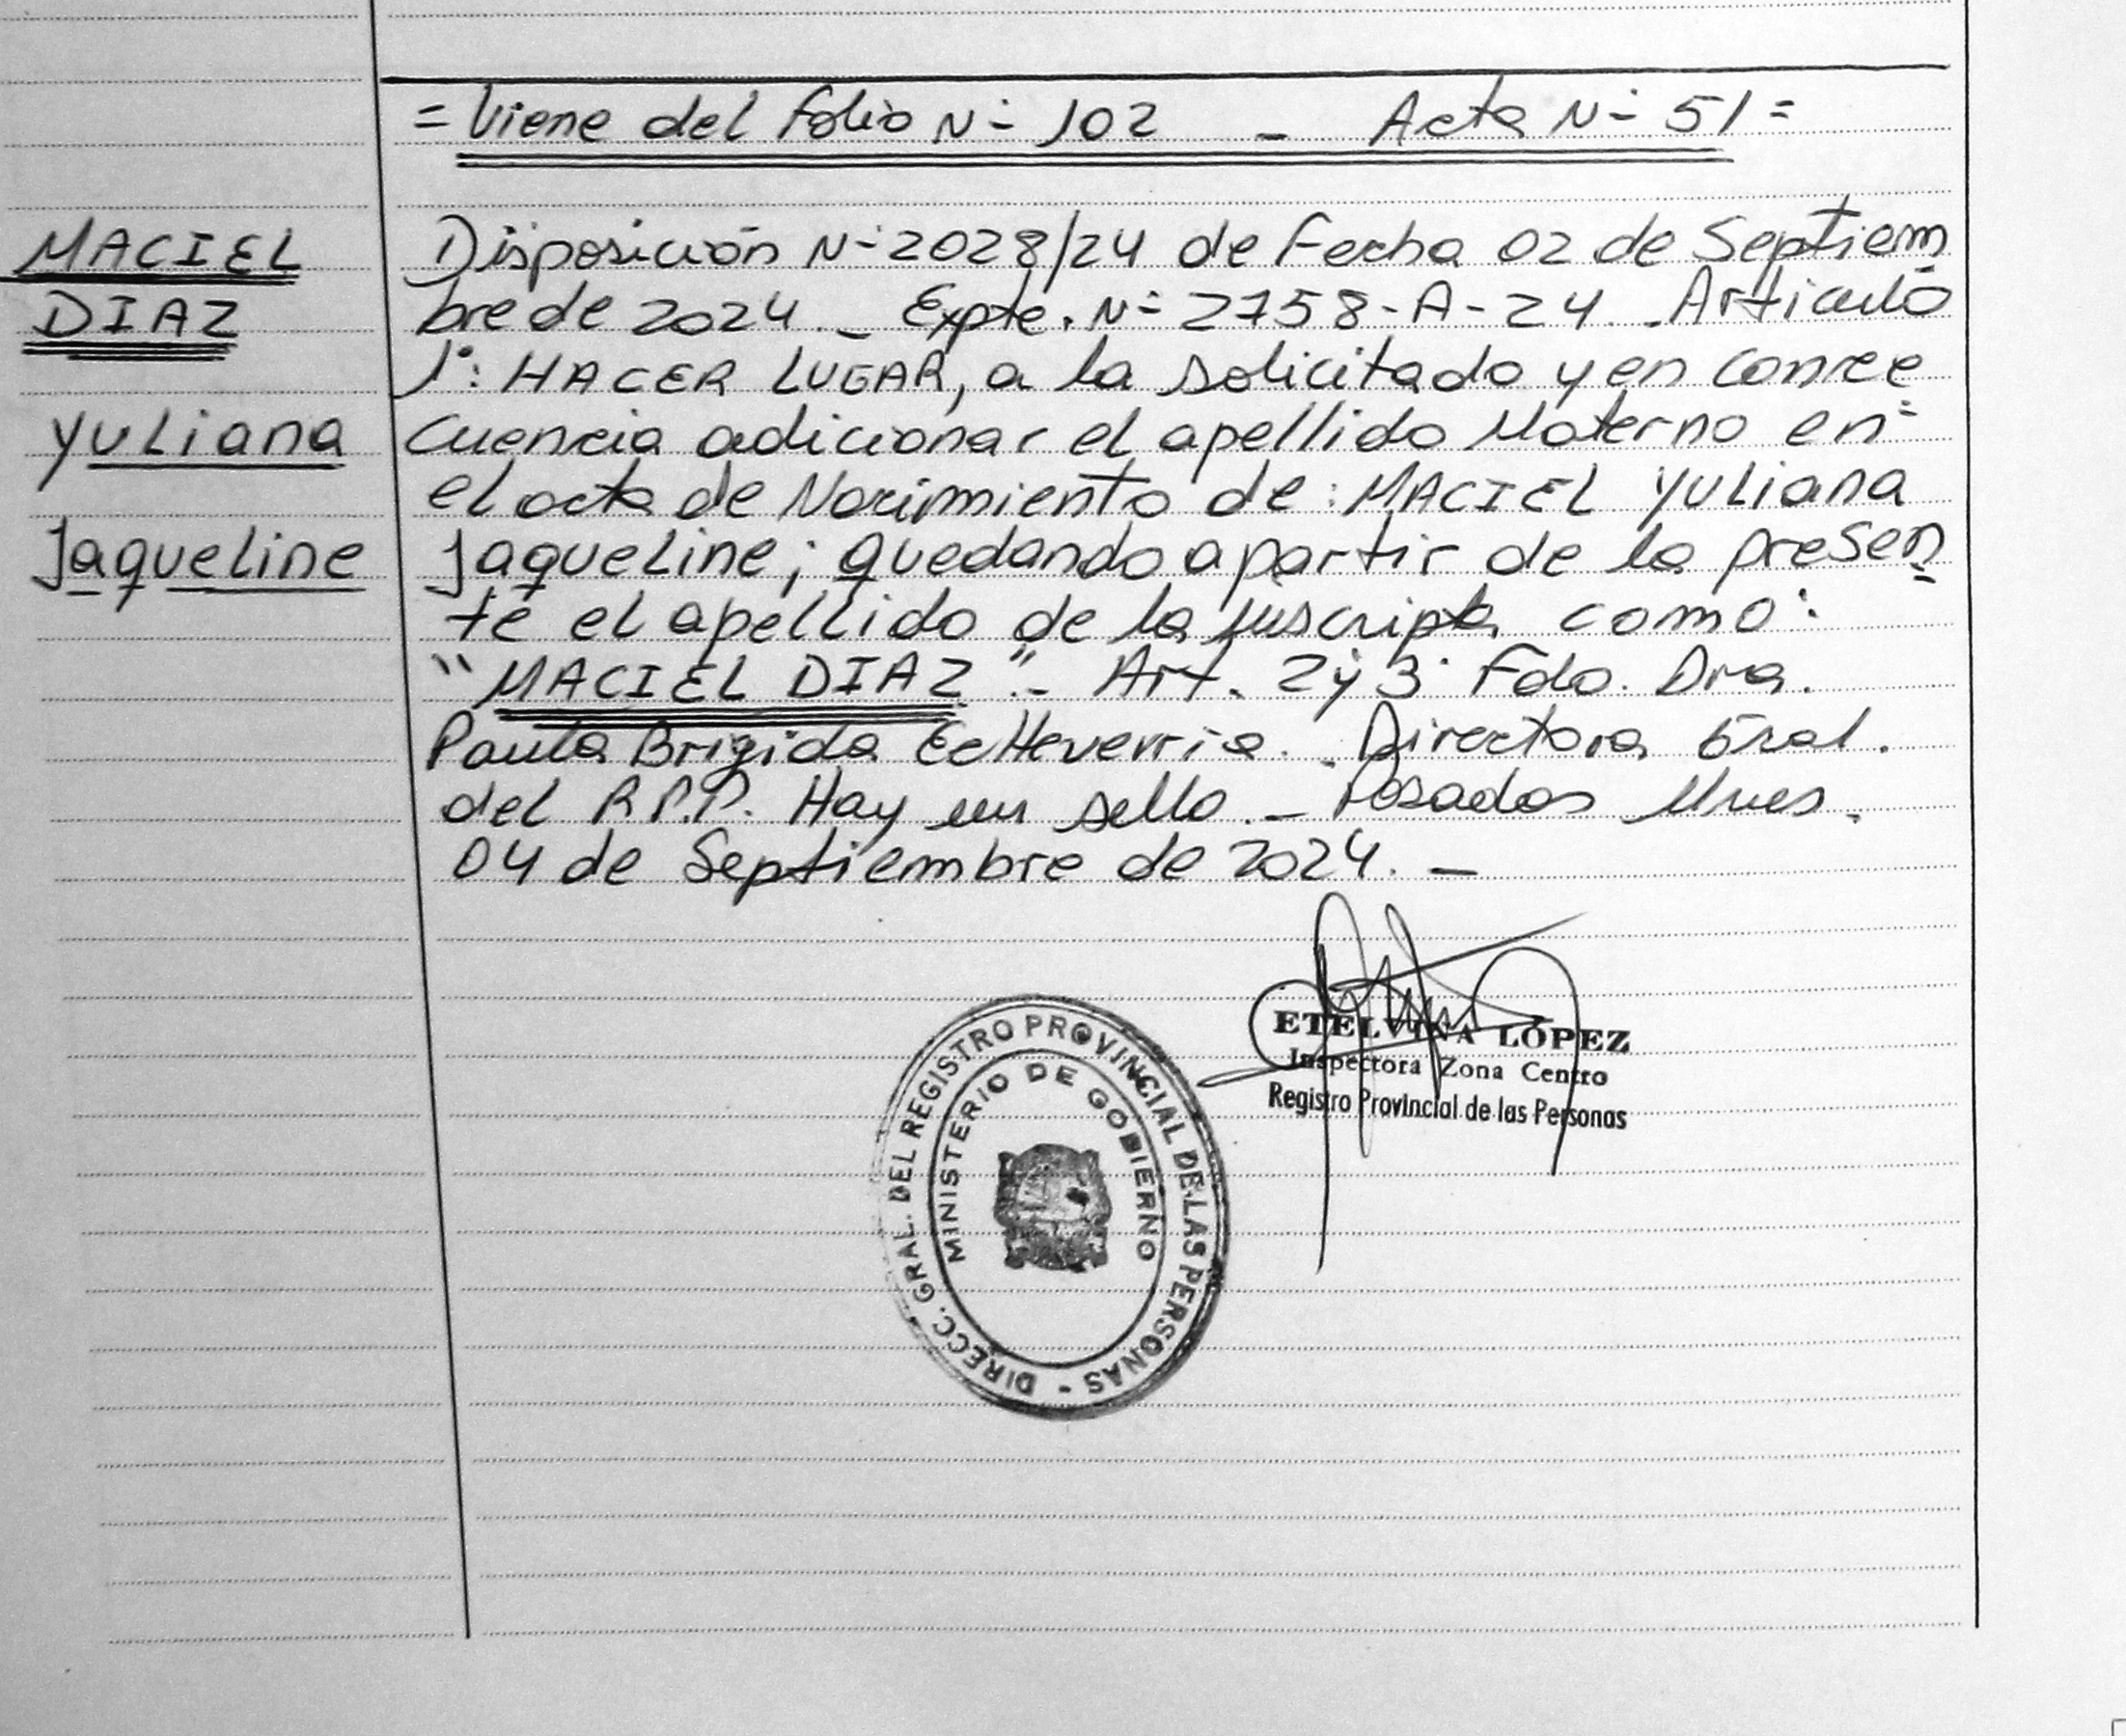 = Viene del Folio N- 102 - Acta N- 51 =
MACIEL
DIAZ
Yuliana
Jaqueline
Disposición N- 2028/24 de Fecha 02 de Septiem
bre de 2024._ Expte. N- 2758-A-24._ Articulo
1°: HACER LUGAR, a la solicitado y en conse
cuencia adicionar el apellido Materno en
el acta de Nacimiento de: MACIEL Yuliana
Jaqueline; quedando a partir de la presen
te el apellido de la suscripta como:
"MACIEL DIAZ".- Art. 2 y 3 Fdo. Dra.
Paula Brigida Ectheverria._ Directora Gral.
del R.P.P. Hay un sello._ Posadas Mnes.
04 de Septiembre de 2024._
ETELVINA LÓPEZ
Inspectora Zona Centro
Registro Provincial de las Personas
DIRECC. GRAL. DEL REGISTRO PROVINCIAL DE LAS PERSONAS -
MINISTERIO DE GOBIERNO